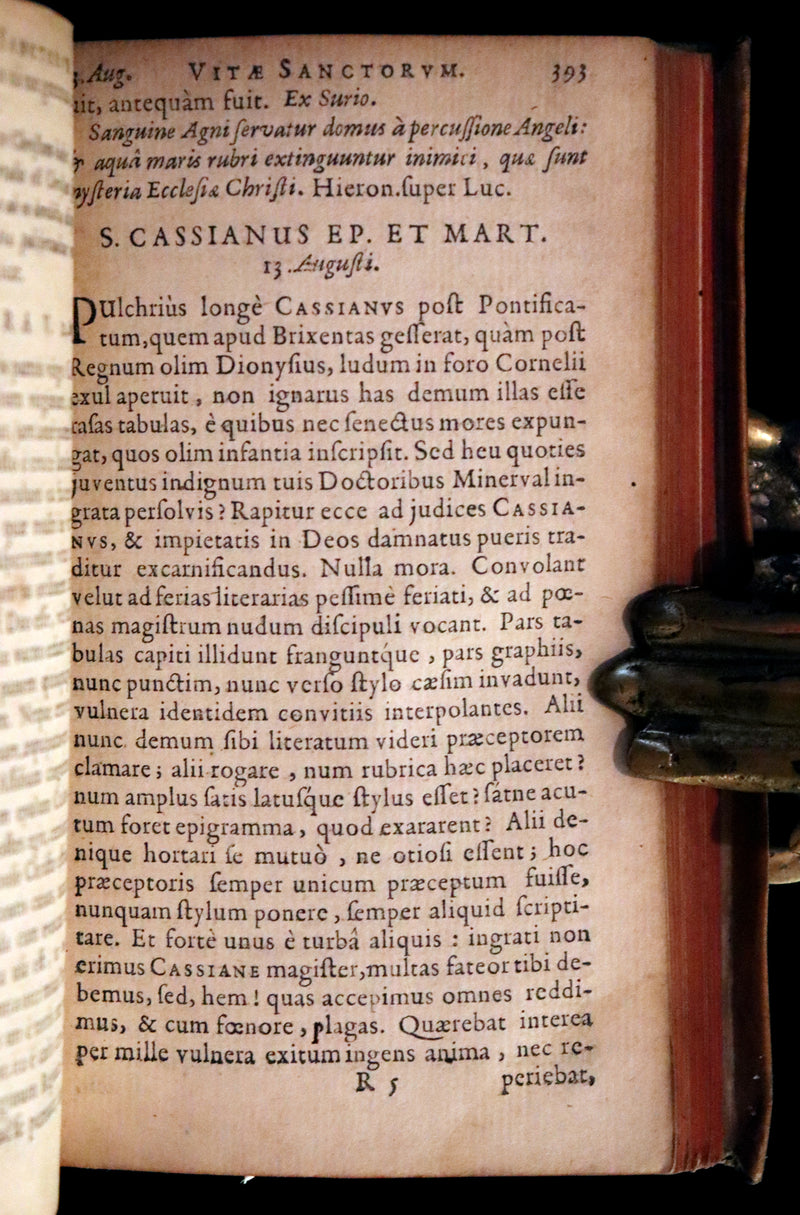 Aug. VITÆ SANCTORVM. 393
iit, antequàm fuit. Ex Surio.
Sanguine Agni ſervatur domus à percuſſione Angeli:
aquâ maris rubri extinguuntur inimici, quæ ſunt
myſteria Eccleſiæ Chriſti. Hieron. ſuper Luc.
S. CASSIANUS EP. ET MART.
13. Auguſti.
PUlchriùs longè CASSIANVS poſt Pontifica-
tum, quem apud Brixentas geſſerat, quàm poſt
Regnum olim Dionyſius, ludum in foro Cornelii
exul aperuit, non ignarus has demum illas eſſe
raſas tabulas, è quibus nec ſenectus mores expun-
gat, quos olim infantia inſcripſit. Sed heu quoties
juventus indignum tuis Doctoribus Minerval in-
grata perſolvis? Rapitur ecce ad judices CASSIA-
NVS, & impietatis in Deos damnatus pueris tra-
ditur excarnificandus. Nulla mora. Convolant
velut ad ferias literarias peſſimè feriati, & ad pœ-
nas magiſtrum nudum diſcipuli vocant. Pars ta-
bulas capiti illidunt franguntq́ue, pars graphiis,
nunc punctim, nunc verſo ſtylo cæſim invadunt,
vulnera identidem convitiis interpolantes. Alii
nunc demum ſibi literatum videri præceptorem
clamare; alii rogare, num rubrica hæc placeret?
num amplus ſatis latuſq́ue ſtylus eſſet? ſatne acu-
tum foret epigramma, quod exararent? Alii de-
nique hortari ſe mutuò, ne otioſi eſſent; hoc
præceptoris ſemper unicum præceptum fuiſſe,
nunquam ſtylum ponere, ſemper aliquid ſcripti-
tare. Et fortè unus è turbâ aliquis: ingrati non
erimus CASSIANE magiſter, multas fateor tibi de-
bemus, ſed, hem! quas accepimus omnes reddi-
mus, & cum fœnore, plagas. Quærebat interea
per mille vulnera exitum ingens anima, nec re-
R 5 periebat,